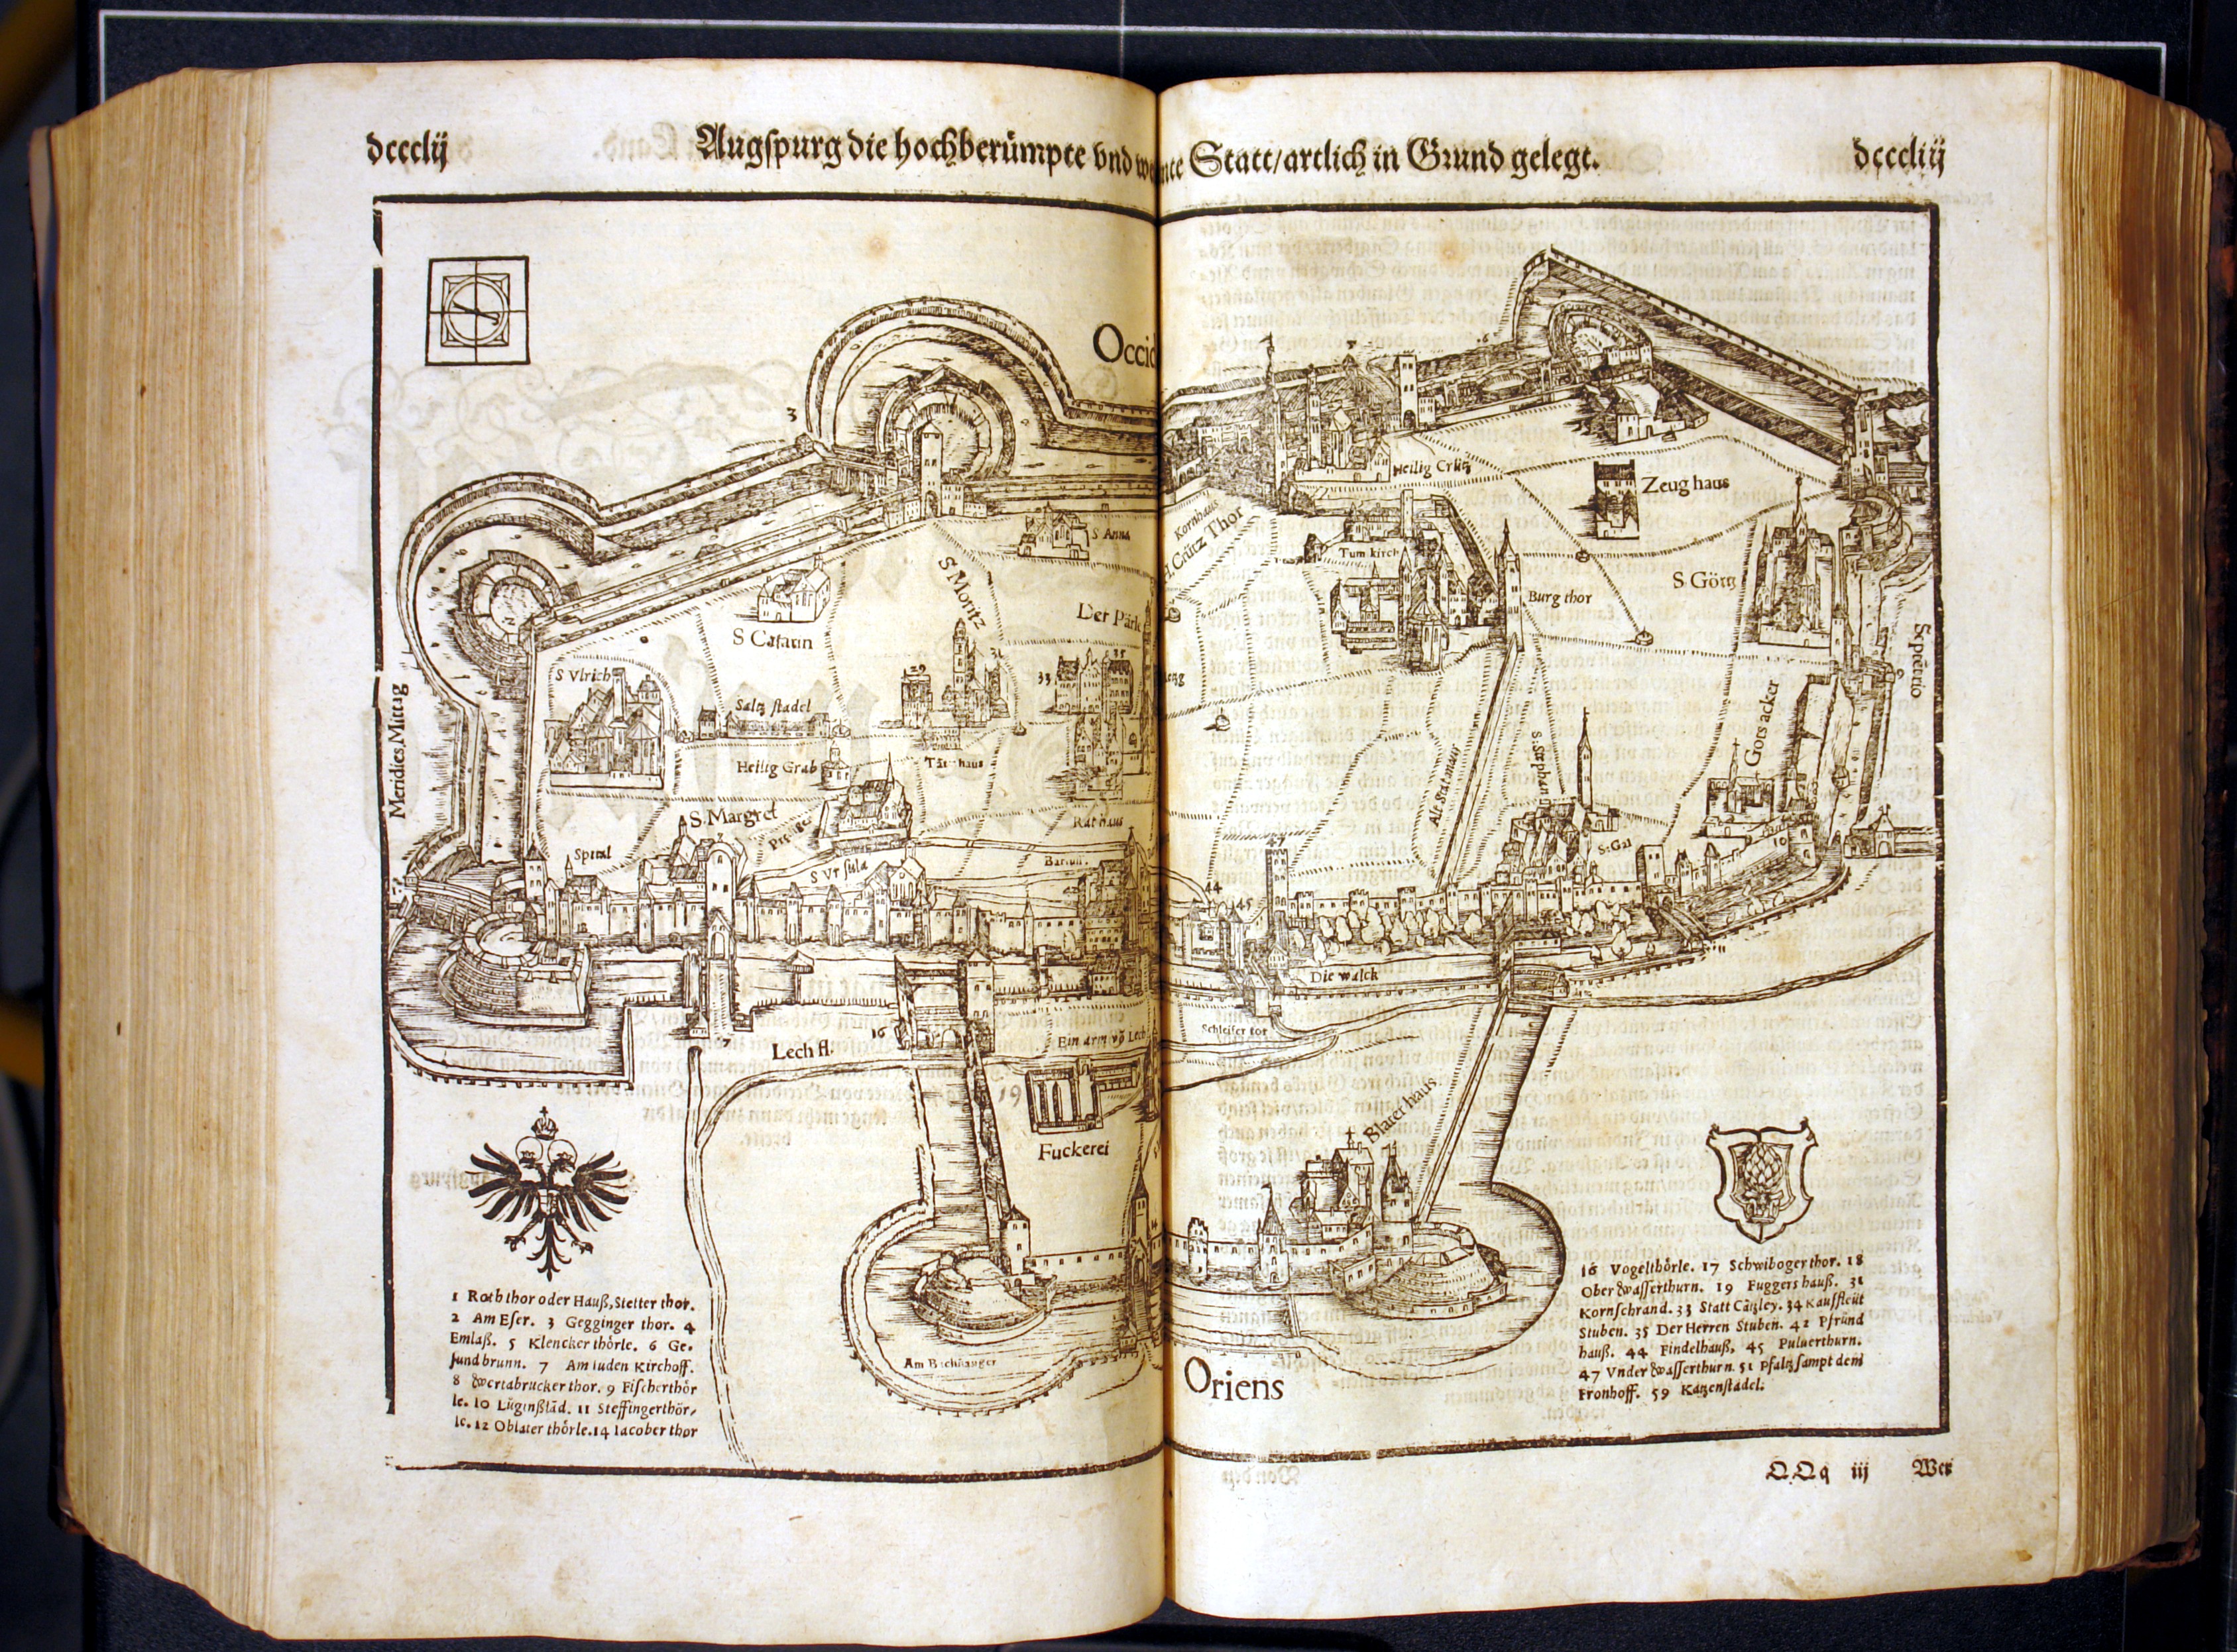 dcccclij
Augſpurg die hochberümpte vnd
Statt/artlich in Grund gelegt.
dccccliij
Occid
3
Heilig Crütz
Zeug haus
Kornhaus
H. Crütz Thor
S Anna
Tum kirch
S Moritz
S Görg
Burg thor
Der Pärl
S Catarin
Septētrio
S Vlrich
29
31
33
35
Meridies, Mittag
Saltz ſtadel
Gots acker
Heilig Grab
Alt Statmaur
S. Stephan
S. Margret
Rathaus
Spital
S Vrſula
S. Gal
10
47
44
45
Die walck
Schleifer tor
16
Lech fl.
Ein arm vō Lech
19
Fuckerei
Blater haus
14
Oriens
1 Roth thor oder Hauß, Stetter thor.
2 Am Eſer. 3 Gegginger thor. 4
Emlaß. 5 Klencker thörle. 6 Ge-
ſundbrunn. 7 Am iuden Kirchoff.
8 Wertabrucker thor. 9 Fiſcherthör
le. 10 Lüginßlād. 11 Steffingerthör-
le. 12 Oblater thörle. 14 Iacober thor
16 Vogelthörle. 17 Schwiboger thor. 18
Ober Waſſerthurn. 19 Fuggers hauß. 31
Kornſchrand. 33 Statt Cātzley. 34 Kauffleüt
Stuben. 35 Der Herren Stuben. 42 Pfründ
hauß. 44 Findelhauß. 45 Puluerthurn.
47 Vnder Waſſerthurn. 51 Pfaltz ſampt dem
Fronhoff. 59 Katzenſtadel.
QQq iij
Wer